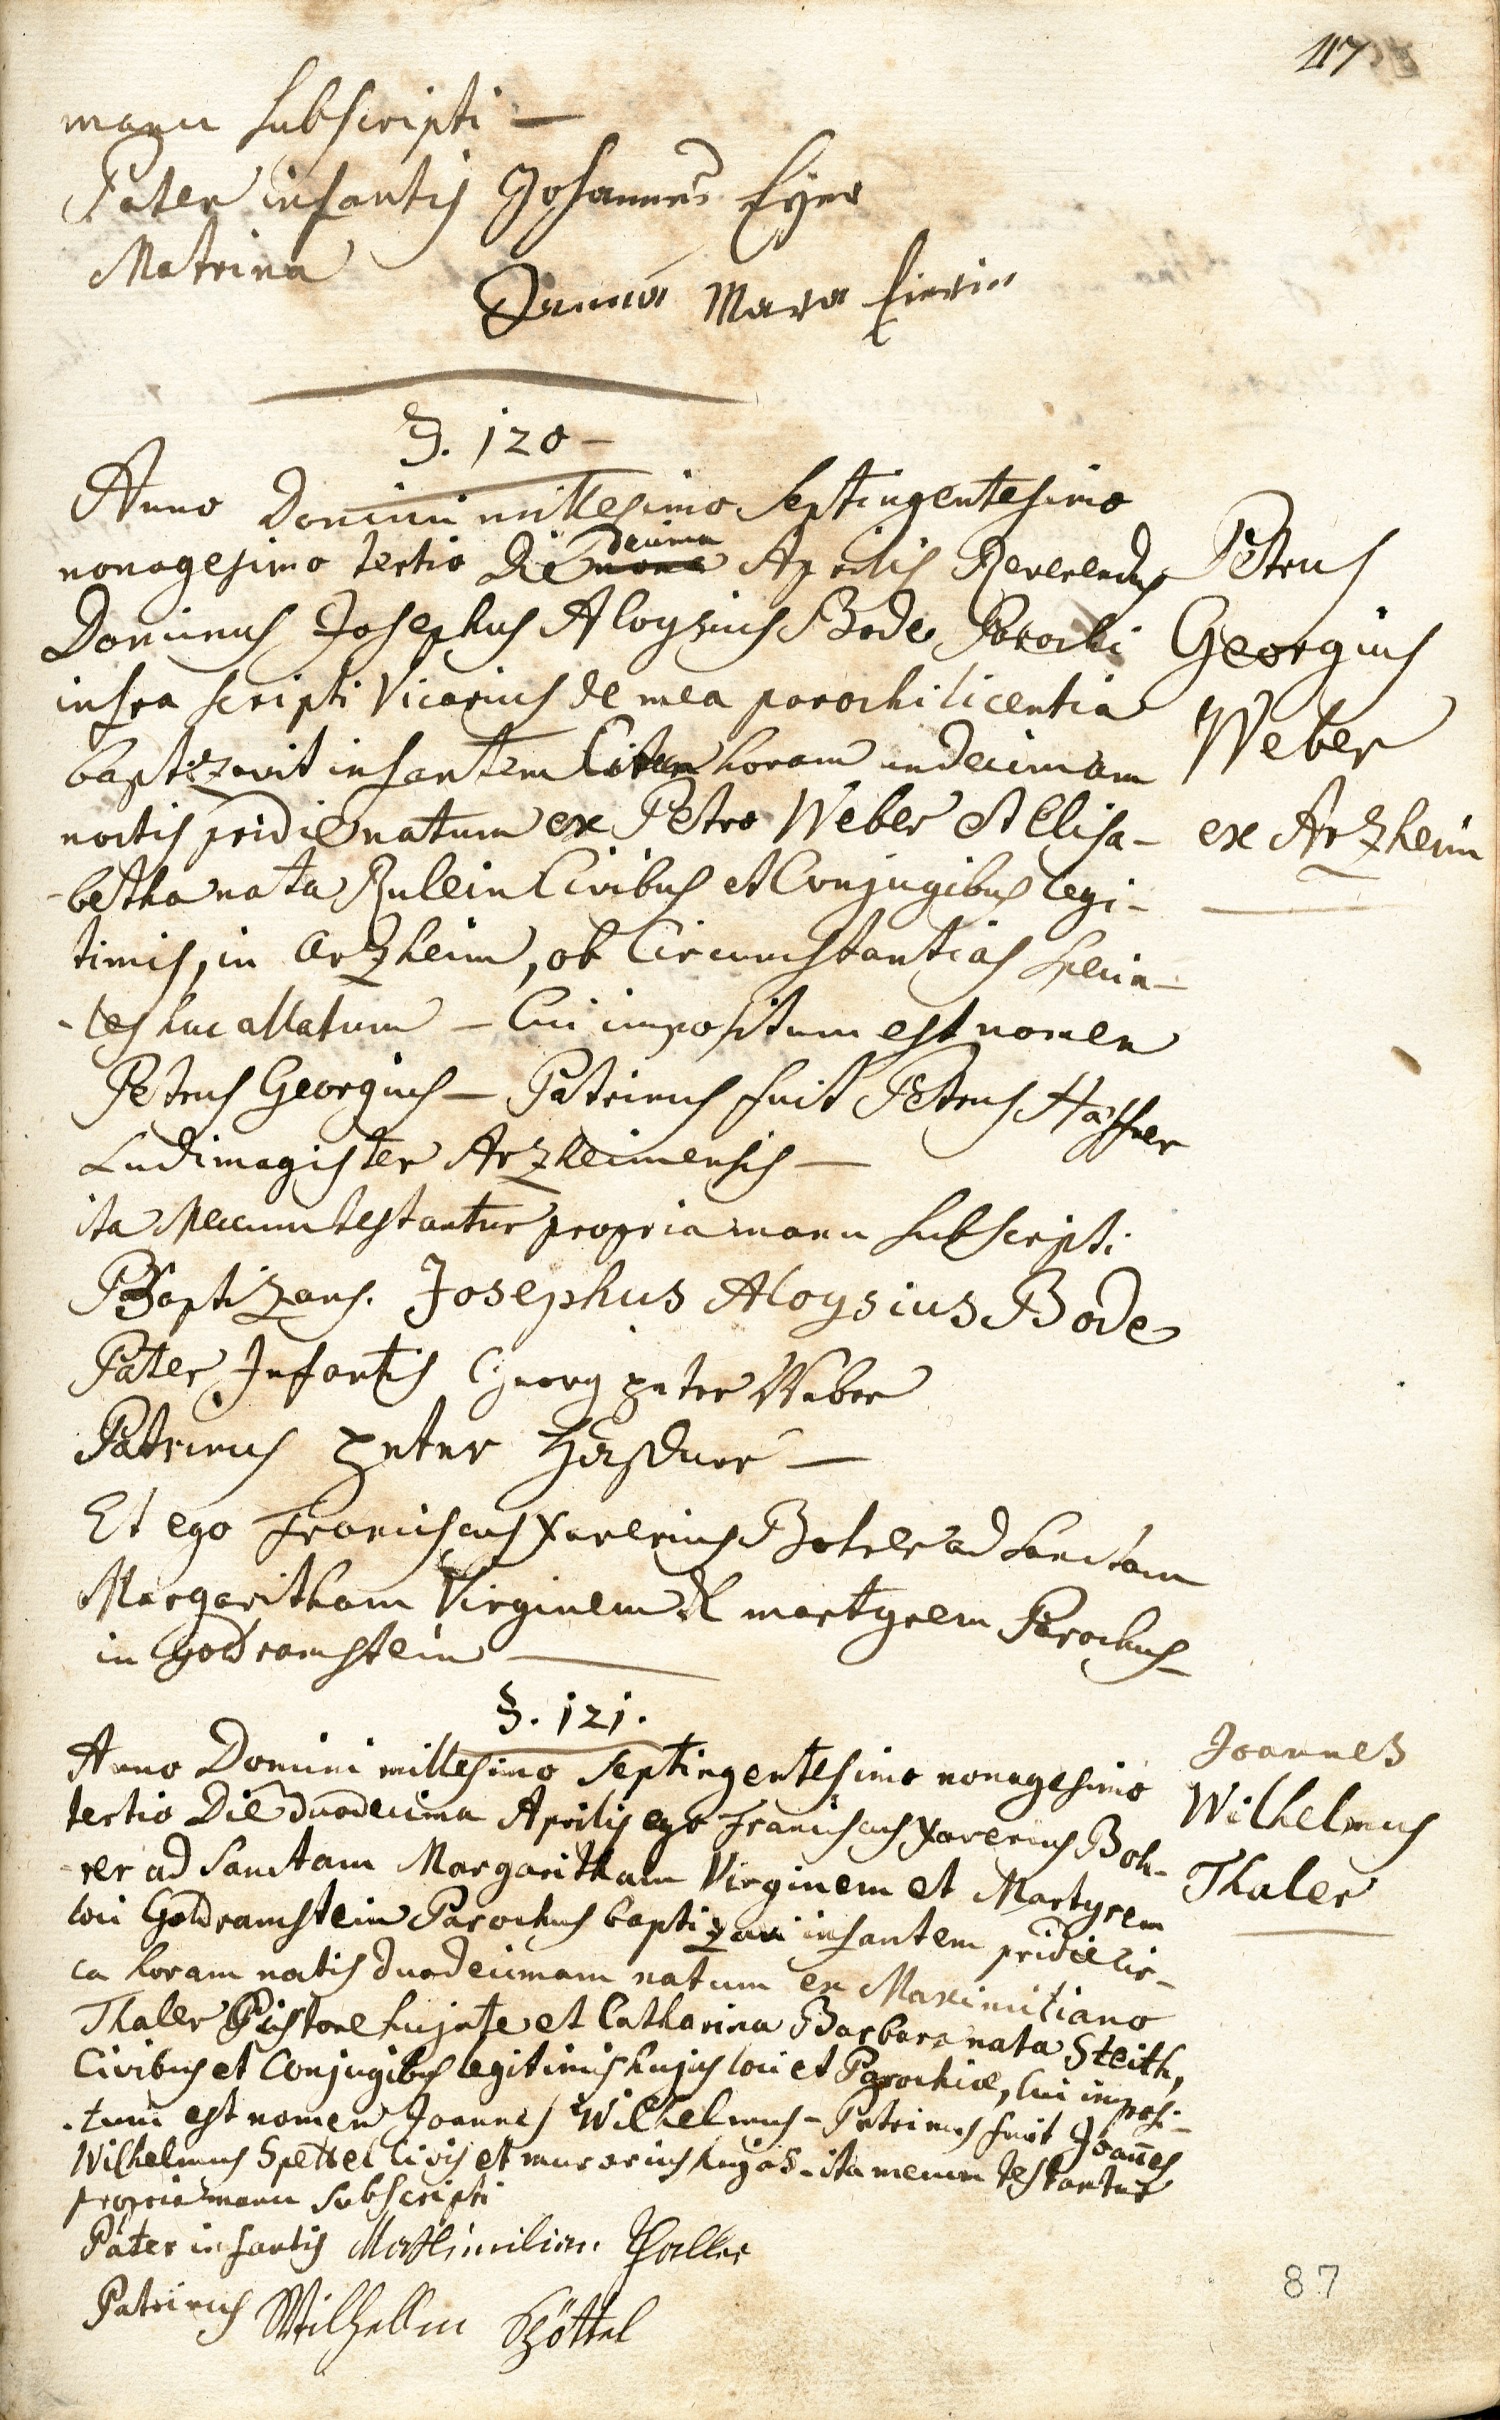 117
manu subscripti —
Pater infantis Johannes Eyer
Matrina
Anna Mara Eierin
§. 120 —
Anno Domini millesimo septingentesimo
nonagesimo tertio Die nona decima Aprilis Reverendus
Dominus Josephus Aloysius Bode Parochi
infra scripti Vicarius de mea parochi licentia
baptizavit infantem Circa horam undecimam
noctis pridie natum ex Petro Weber et Elisa-
-betha nata Rulein Civibus et Conjugibus legi-
timis, in Arzheim, ob Circumstantias specia-
-les huc allatum — Cui impositum est nomen
Petrus Georgius — Patrinus fuit Petrus Haffner
Ludimagister Arzheimensis —
ita Mecum testantur propria manu subscripti
Baptizans. Josephus Aloysius Bode
Pater Infantis Georg peter Weber
Patrinus peter —
Et ego Franciscus Xaverius Bohrer ad Sanctam
Margaritham Virginem & martyrem Parochus
in Godramstein —
Petrus
Georgius
Weber
ex Arzheim
§. 121.
Anno Domini millesimo septingentesimo nonagesimo
tertio Die duodecima Aprilis ego Franciscus Xaverius Boh-
-rer ad Sanctam Margaritham Virginem et Martyrem
loci Godramstein Parochus baptizavi infantem pridie cir-
ca horam noctis duodecimam natum ex Maximiliano
Thaler Pistore hujate et Catharina Barbara nata Steith,
Civibus et Conjugibus legitimis hujus loci et Parochiæ, Cui imposi-
-tum est nomen Joannes Wilhelmus — Patrinus fuit Joañes
Wilhelmus Spettel Civis et murarius hujas. ita mecum testantur
propria manu subscripti
Pater infantis Maximilian Thaller
Patrinus Wilhellm Spöttel
Joannes
Wilhelmus
Thaler
87